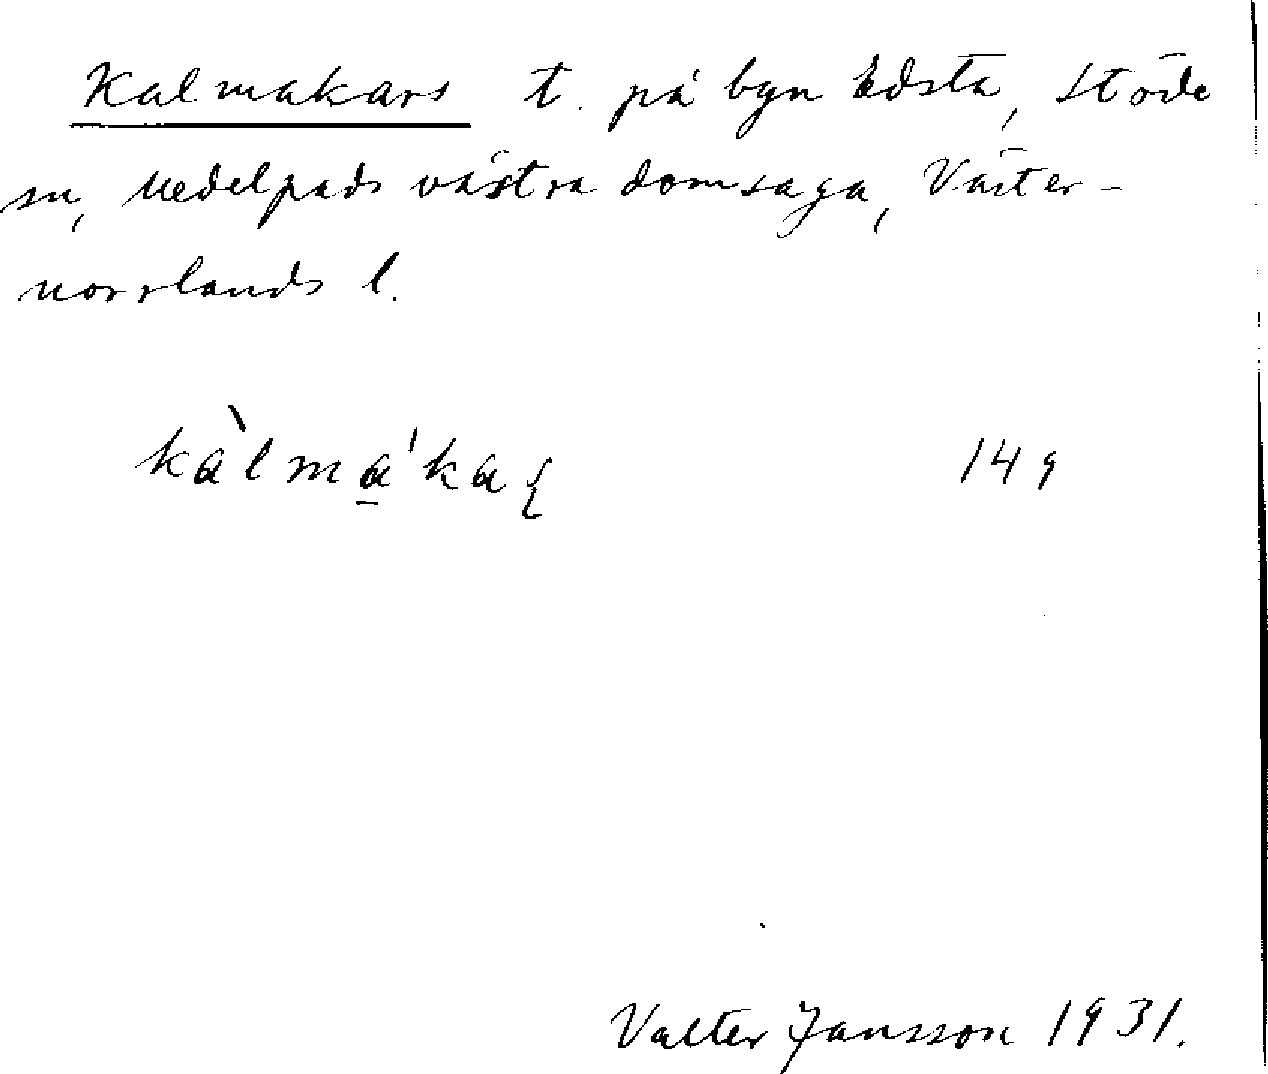 Kalmakars t. på byn Edsta, Stöde
sn, Medelpads västra domsaga, Väster-
norrlands l.
kàlma̲'kaʂ 149
Valter Jansson 1931.